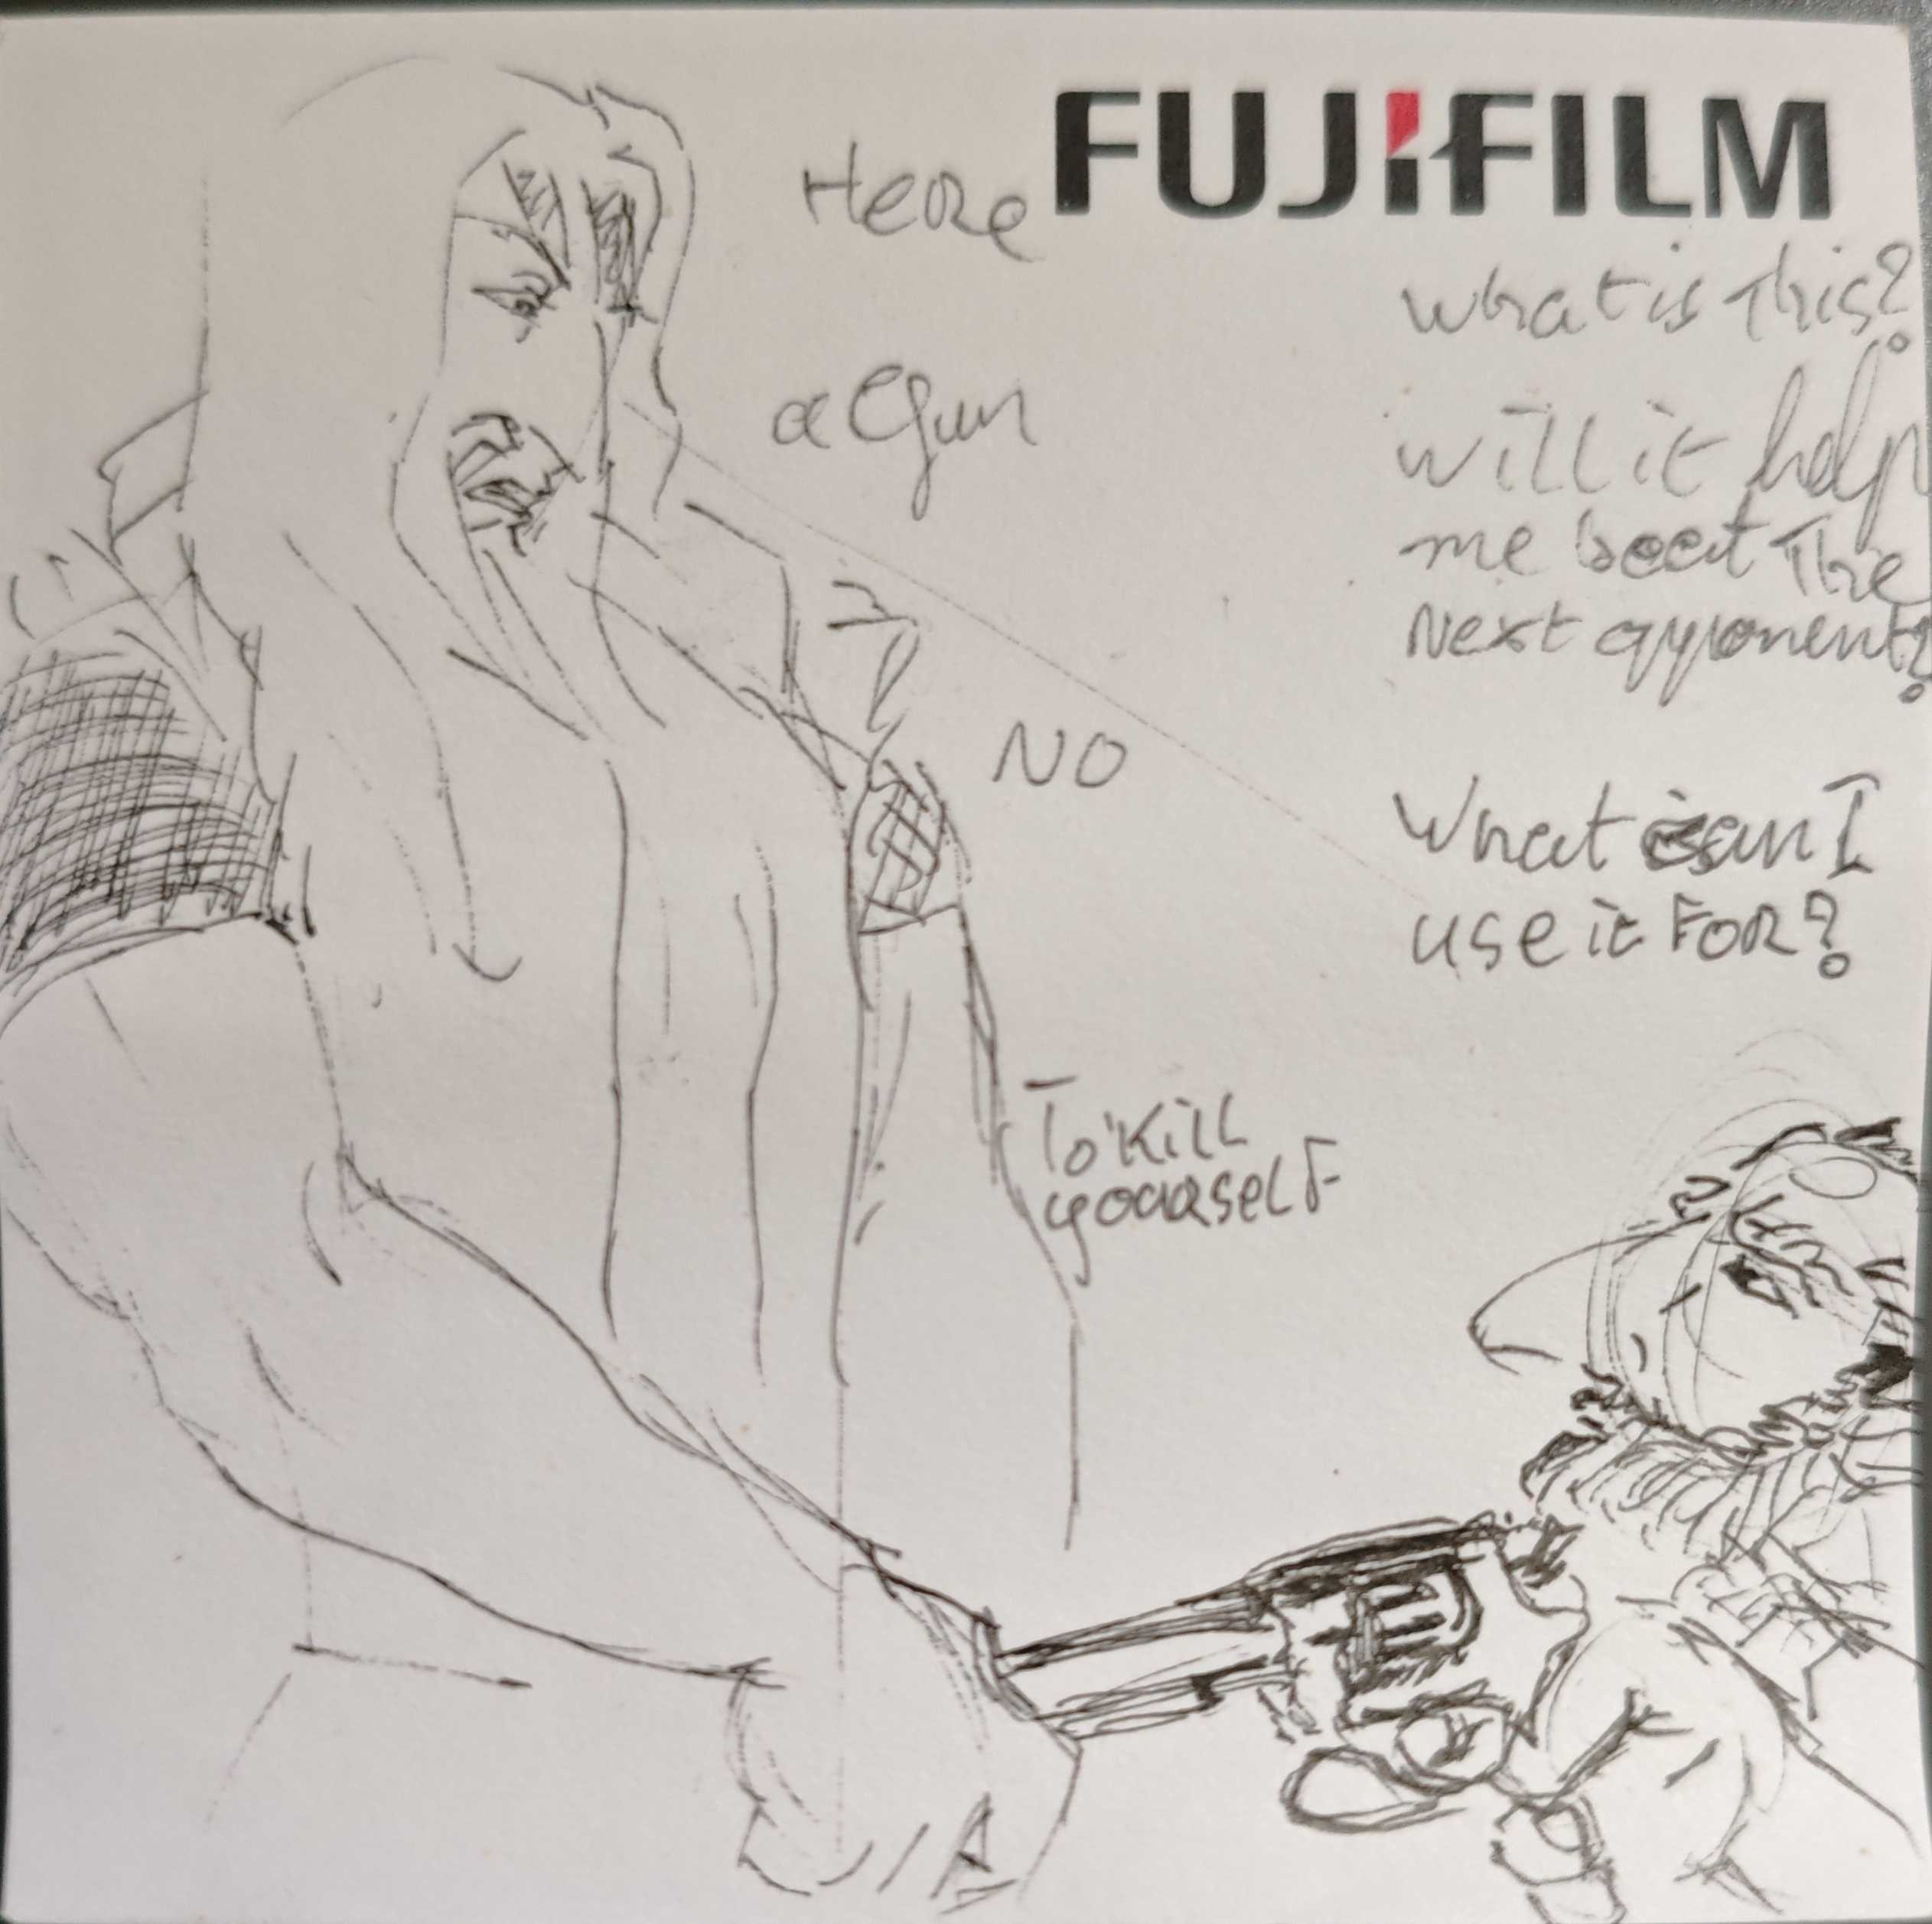 FUJIFILM
Here
What is This?
a Gun
will it help
me beat The
Next opponent?
NO
What can I
use it FOR?
To Kill
yourself